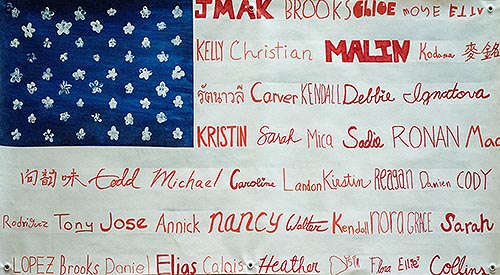 JMAK BROOKS CHLOE MOSE ETTA
KELLY Christian MALIN Kodama 麥銘
รัตนาวลี Carver KENDALL Debbie Ignatova
KRISTIN Sarah Mica Sadie RONAN Mac
向韵味 todd Michael Caroline Landon Kirstin Reagan Damien CODY
Rodriguez Tony Jose Annick nancy Walter Kendall nora GRACE Sarah
LOPEZ Brooks Daniel Elias Calais Heather Flora Ellie Collins